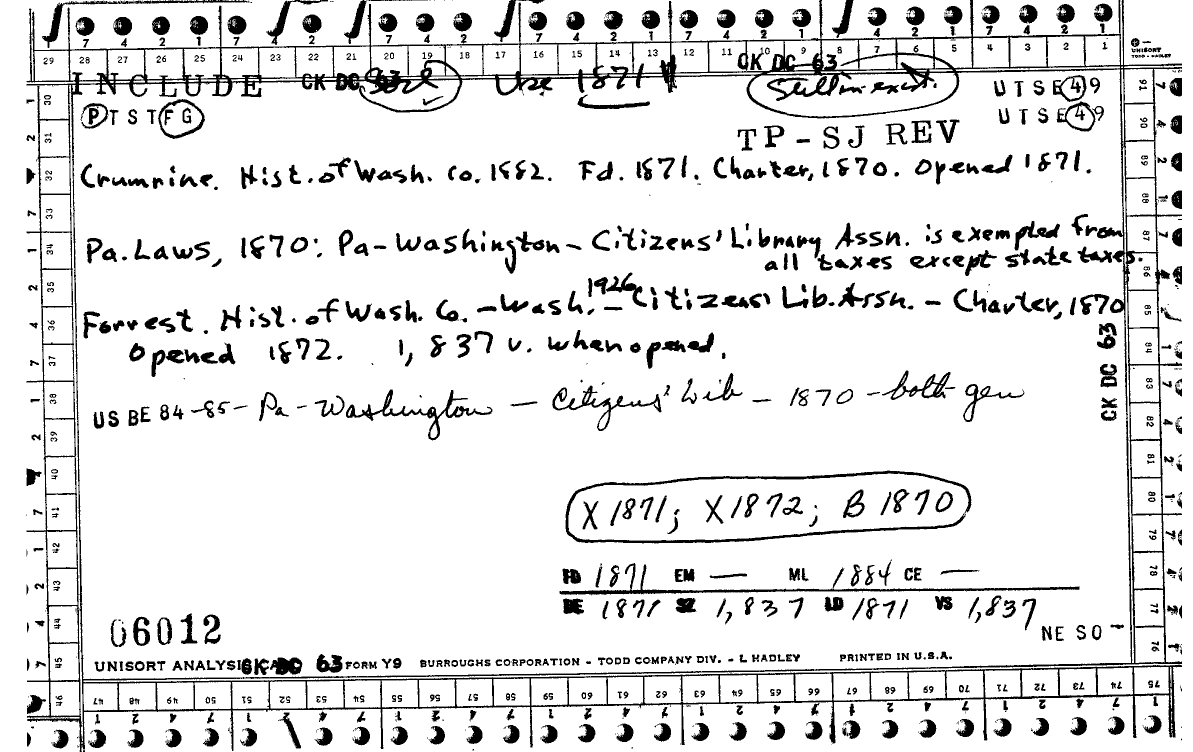 7 4 2 1 7 4 2 1 7 4 2 1 7 4 2 1 7 4 2 1 7 4 2 1
29 28 27 26 25 24 23 22 21 20 19 18 17 16 15 14 13 12 11 10 9 8 7 6 5 4 3 2 1
UNISORT
TODD - HADLEY
INCLUDE CK DC 63 Use 1871 CK DC 63 Still in exist. UTSE 49
PTSTFG UTSE 49
TP-SJ REV
Crumrine. Hist. of Wash. Co. 1882. Fd. 1871. Charter, 1870. Opened 1871.
Pa. Laws, 1870: Pa-Washington-Citizens' Library Assn. is exempted from
all taxes except state taxes.
Forrest. Hist. of Wash. Co. 1926 - Wash. - Citizens' Lib. Assn. - Charter, 1870
Opened 1872. 1,837 v. when opened.
US BE 84-85- Pa - Washington - Citizens' Lib - 1870 - both gen
CK DC 63
X 1871; X 1872; B 1870
FD 1871 EM — ML 1884 CE —
DE 1871 SZ 1,837 LD 1871 VS 1,837
NE SO -
06012
UNISORT ANALYSIS CK DC 63 FORM Y9 BURROUGHS CORPORATION - TODD COMPANY DIV. - L HADLEY PRINTED IN U.S.A.
47 48 49 50 51 52 53 54 55 56 57 58 59 60 61 62 63 64 65 66 67 68 69 70 71 72 73 74 75